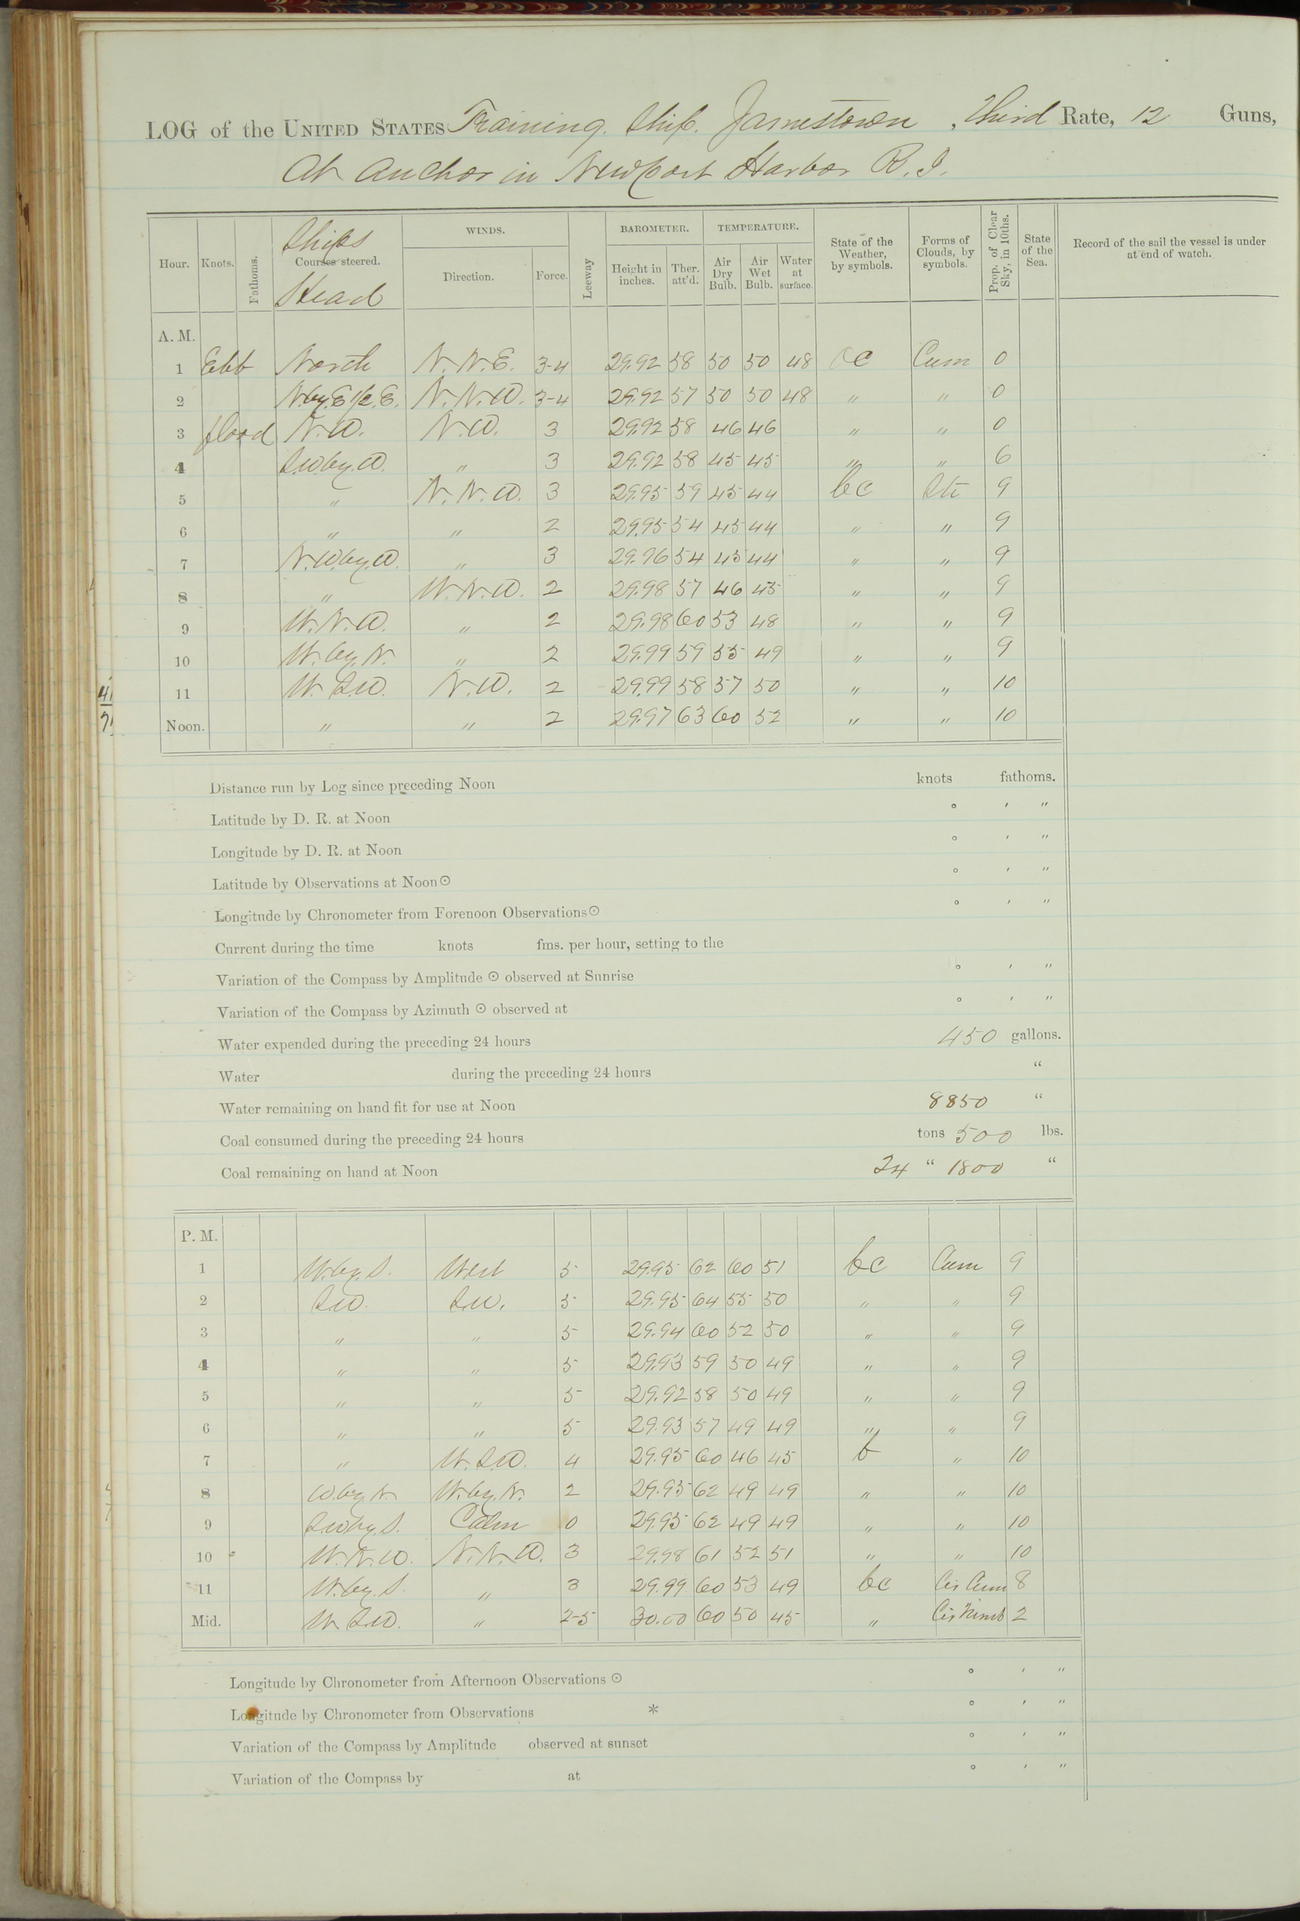 LOG of the UNITED STATES Training Ship Jamestown, Third Rate, 12 Guns,
At Anchor in Newport Harbor R.I.
Hour. Knots. Fathoms. Ships Courses steered. Head WINDS. Direction. Force. Leeway BAROMETER. Height in inches. Ther. att'd. TEMPERATURE. Air Dry Bulb. Air Wet Bulb. Water at surface. State of the Weather, by symbols. Forms of Clouds, by symbols. Prop. of Clear Sky, in 10ths. State of the Sea. Record of the sail the vessel is under at end of watch.
A. M.
1 Ebb North N.N.E. 3-4 29.92 58 50 50 48 oc Cum 0
2 N.by.E.½.E. N.N.W. 3-4 29.92 57 50 50 48 " " 0
3 flood N.W. N.W. 3 29.92 58 46 46 " " 0
4 S.W.by.W. " 3 29.92 58 45 45 " " 6
5 " N.N.W. 3 29.95 59 45 44 bc Str 9
6 " " 2 29.95 54 45 44 " " 9
7 N.W.by.W. " 3 29.96 54 45 44 " " 9
8 " W.N.W. 2 29.98 57 46 45 " " 9
9 W.N.W. " 2 29.98 60 53 48 " " 9
10 W.by.N. " 2 29.99 59 55 49 " " 9
11 W.S.W. N.W. 2 29.99 58 57 50 " " 10
Noon. " " 2 29.97 63 60 52 " " 10
Distance run by Log since preceding Noon knots fathoms.
Latitude by D. R. at Noon ° ' "
Longitude by D. R. at Noon ° ' "
Latitude by Observations at Noon ☉ ° ' "
Longitude by Chronometer from Forenoon Observations ☉ ° ' "
Current during the time knots fms. per hour, setting to the
Variation of the Compass by Amplitude ☉ observed at Sunrise ° ' "
Variation of the Compass by Azimuth ☉ observed at ° ' "
Water expended during the preceding 24 hours 450 gallons.
Water during the preceding 24 hours "
Water remaining on hand fit for use at Noon 8850 "
Coal consumed during the preceding 24 hours tons 500 lbs.
Coal remaining on hand at Noon 24 " 1800 "
P. M.
1 W.by.S. West 5 29.95 62 60 51 bc Cum 9
2 S.W. S.W. 5 29.95 64 55 50 " " 9
3 " " 5 29.94 60 52 50 " " 9
4 " " 5 29.93 59 50 49 " " 9
5 " " 5 29.92 58 50 49 " " 9
6 " " 5 29.93 57 49 49 " " 9
7 " W.S.W. 4 29.95 60 46 45 b " 10
8 W.by.N. W.by.N. 2 29.95 62 49 49 " " 10
9 S.W.by.S. Calm 0 29.95 62 49 49 " " 10
10 W.N.W. N.N.W. 3 29.98 61 52 51 " " 10
11 W.by.S. " 3 29.99 60 53 49 bc Cir Cum 8
Mid. W.S.W. " 2-5 30.00 60 50 45 " Cir Nimb 2
Longitude by Chronometer from Afternoon Observations ☉ ° ' "
Longitude by Chronometer from Observations * ° ' "
Variation of the Compass by Amplitude observed at sunset ° ' "
Variation of the Compass by at ° ' "